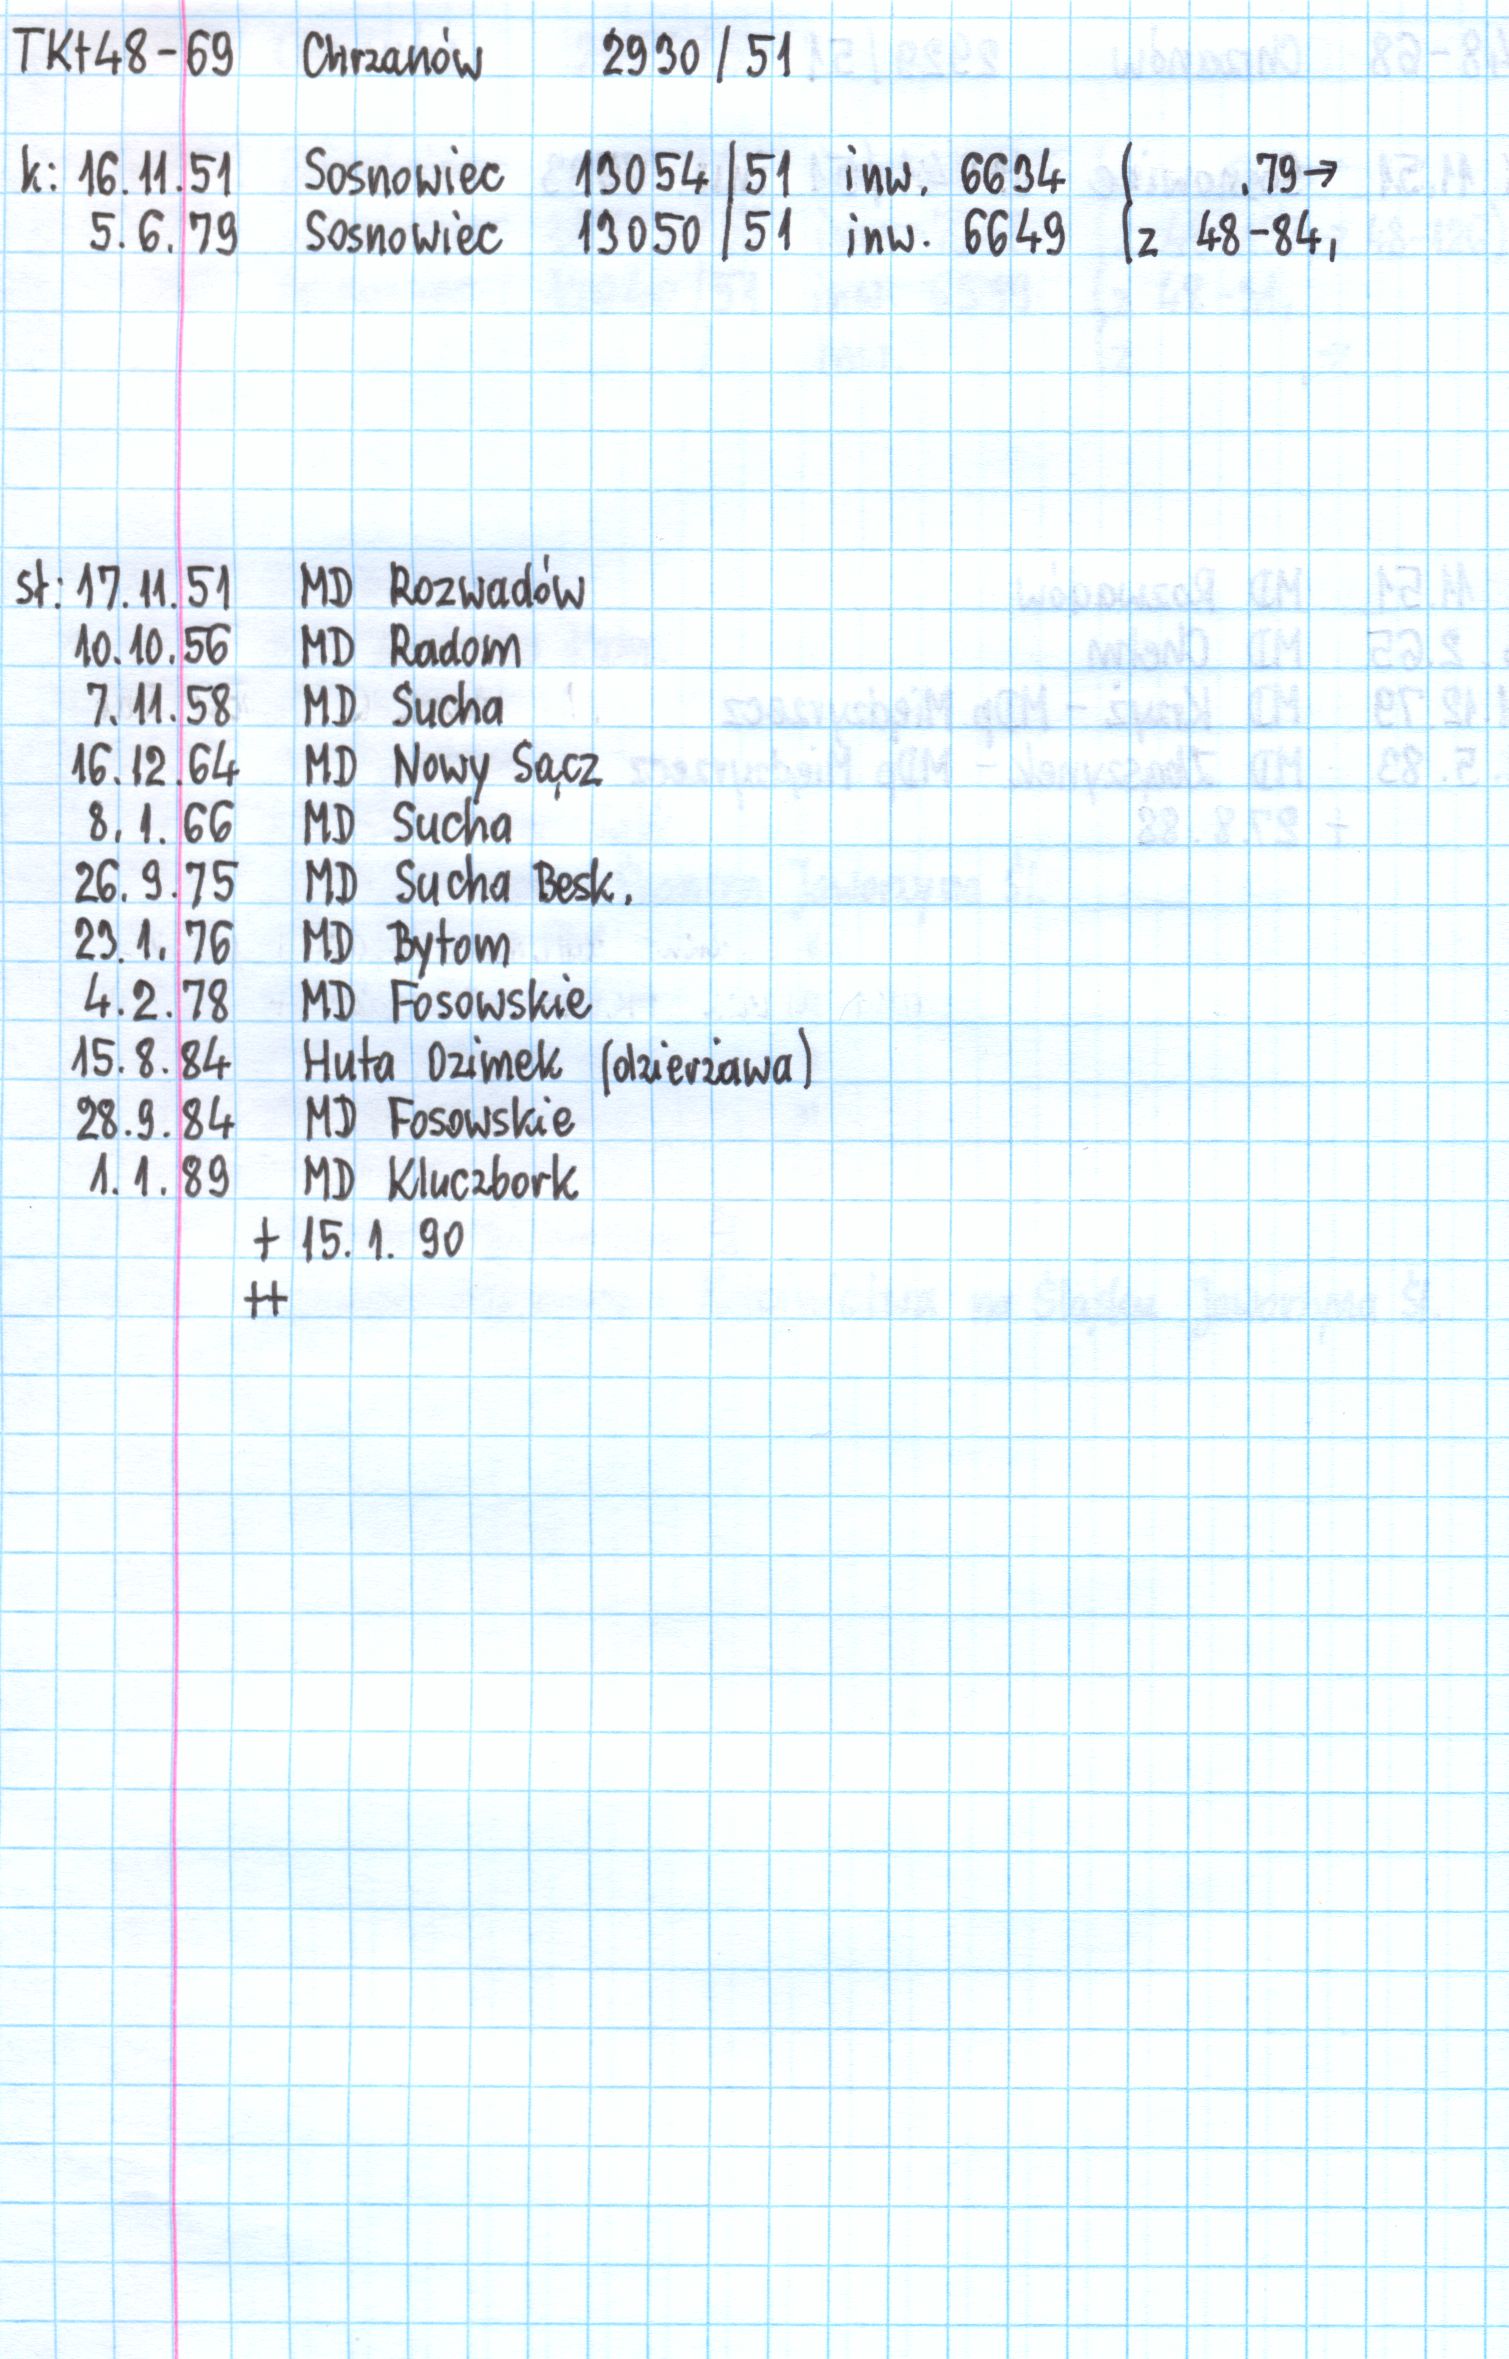 TKt48-69 Chrzanów 2930/51
k: 16.11.51 Sosnowiec 13054/51 inw. 6634 ( .79→
5.6.79 Sosnowiec 13050/51 inw. 6649 (z 48-84,
st: 17.11.51 MD Rozwadów
10.10.56 MD Radom
7.11.58 MD Sucha
16.12.64 MD Nowy Sącz
8.1.66 MD Sucha
26.9.75 MD Sucha Besk.
23.1.76 MD Bytom
4.2.78 MD Fosowskie
15.8.84 Huta Ozimek (dzierżawa)
28.9.84 MD Fosowskie
1.1.89 MD Kluczbork
+ 15.1.90
++